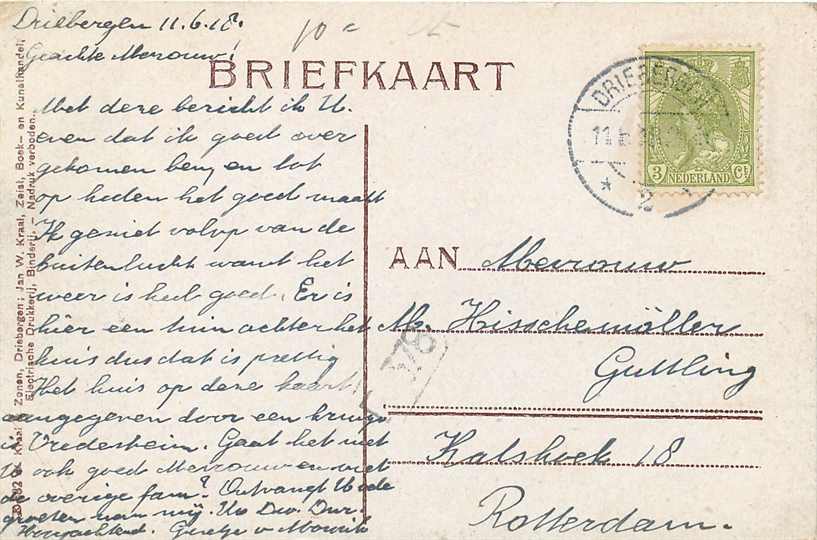 Driebergen 11.6.18.
Geachte Mevrouw!
BRIEFKAART
Met deze bericht ik U.
even dat ik goed over
gekomen ben, en tot
op heden het goed maakt
Ik geniet volop van de
buitenlucht want het
weer is heel goed. Er is
hier een tuin achter het
huis dus dat is prettig
Het huis op deze kaart
aangegeven door een kruisje
is Vredesheim. Gaat het met
U ook goed Mevrouw en met
de overige fam? Ontvangt U de
groeten van mij. Uw Dw. Dnr.
Hoogachtend.
AAN Mevrouw
M. Hisschemöller
Guttling
Kalshoek 18
Rotterdam.
DRIEBERGEN
2
3 NEDERLAND Ct
78
Zonen, Driebergen; Jan W. Kraal, Zeist, Boek- en Kunsthandel,
Electrische Drukkerij, Binderij. - Nadruk verboden.